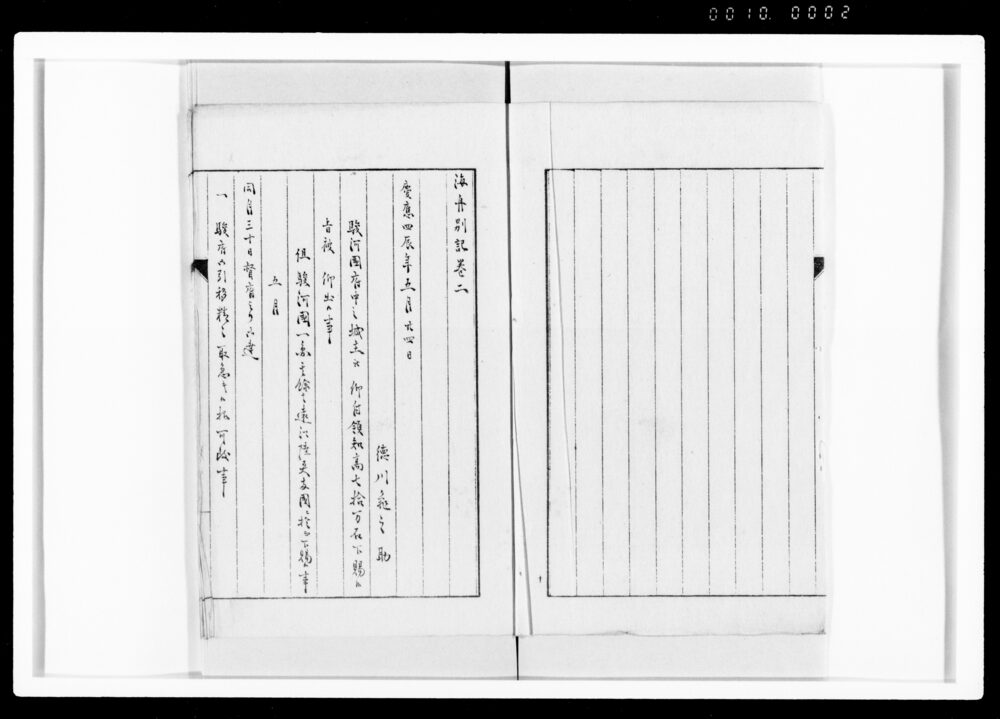 0010. 0002
海舟別記巻二
慶應四辰年五月廿四日
徳川亀之助
駿河國府中之城主被 仰付領知高七拾万石下賜候
旨被 仰出候事
但駿河國一円其餘遠江陸奥両國ニ於而下賜候事
五月
同月三十日督府より御達
一 駿府御引移精々取急候様可致事